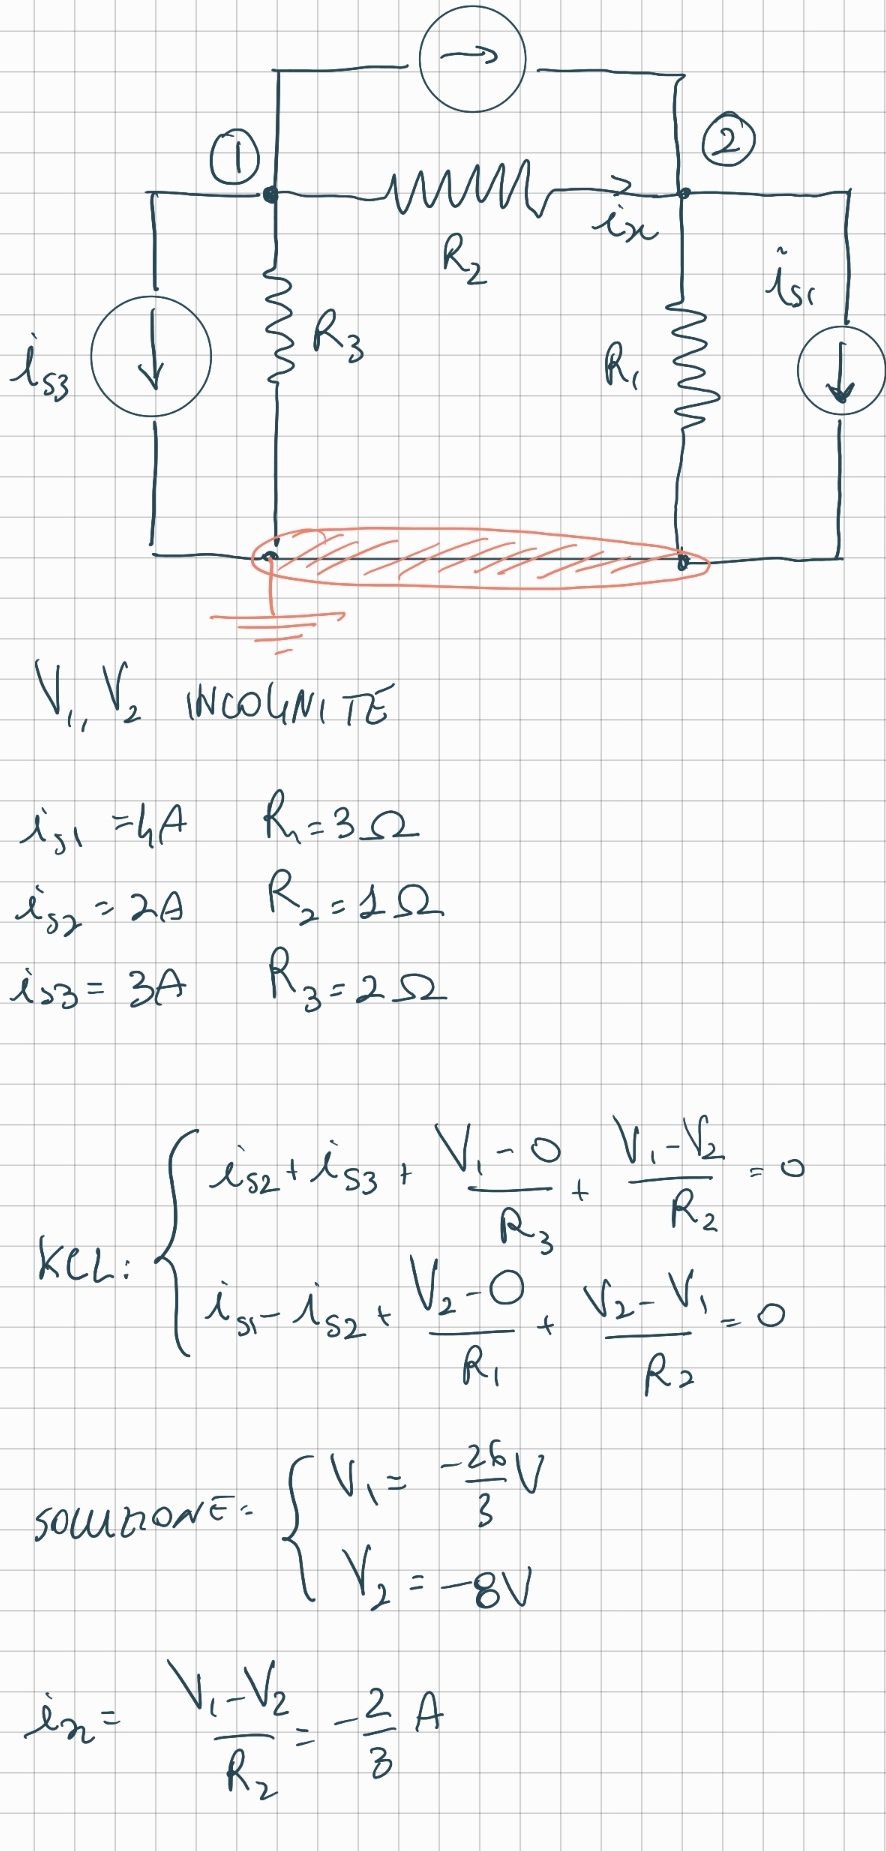 →
① ②
R₂ iₓ
iₛ₃ R₃ R₁ iₛ₁
V₁, V₂ INCOGNITE
iₛ₁ = 4A R₁ = 3Ω
iₛ₂ = 2A R₂ = 1Ω
iₛ₃ = 3A R₃ = 2Ω
KCL: { iₛ₂ + iₛ₃ + (V₁ - 0)/R₃ + (V₁ - V₂)/R₂ = 0
iₛ₁ - iₛ₂ + (V₂ - 0)/R₁ + (V₂ - V₁)/R₂ = 0
SOLUZIONE = { V₁ = -26/3 V
V₂ = -8V
iₓ = (V₁ - V₂)/R₂ = -2/3 A